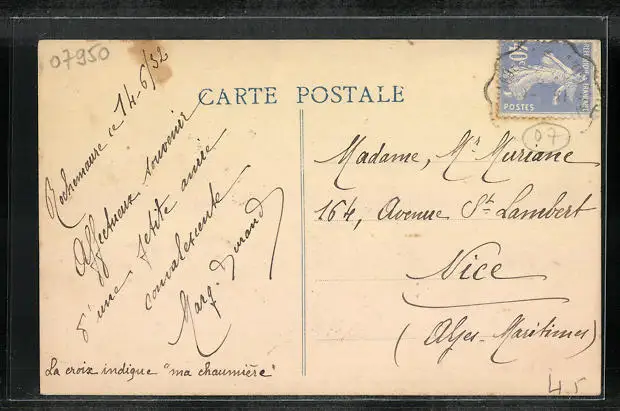 07950
Rochemaure ce 14-6/32
Affectueux souvenir
d'une petite amie
convalescente
Marg. Durand
La croix indique "ma chaumière"
CARTE POSTALE
40c
POSTES
07
Madame, Mr Muriane
164, Avenue St. Lambert
Nice
(Alpes-Maritimes)
4.5